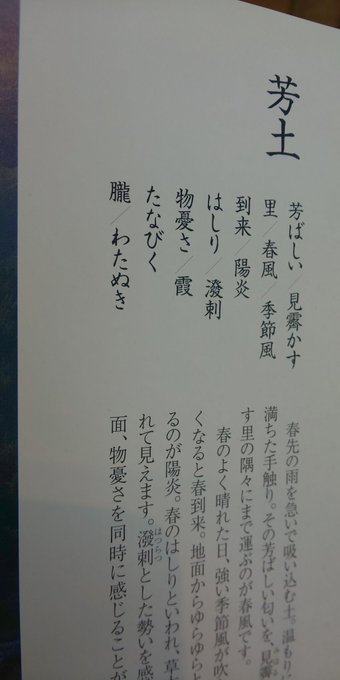 芳土
芳ばしい／見霽かす
里／春風／季節風
到来／陽炎
はしり／潑剌
物憂さ／霞
たなびく
朧／わたぬき
春先の雨を急いで吸い込む土。温もりに
満ちた手触り。その芳ばしい匂いを、見霽
す里の隅々にまで運ぶのが春風です。
春のよく晴れた日、強い季節風が吹
くなると春到来。地面からゆらゆらと
るのが陽炎。春のはしりといわれ、草
れて見えます。潑剌とした勢いを感
はつらつ
面、物憂さを同時に感じることが